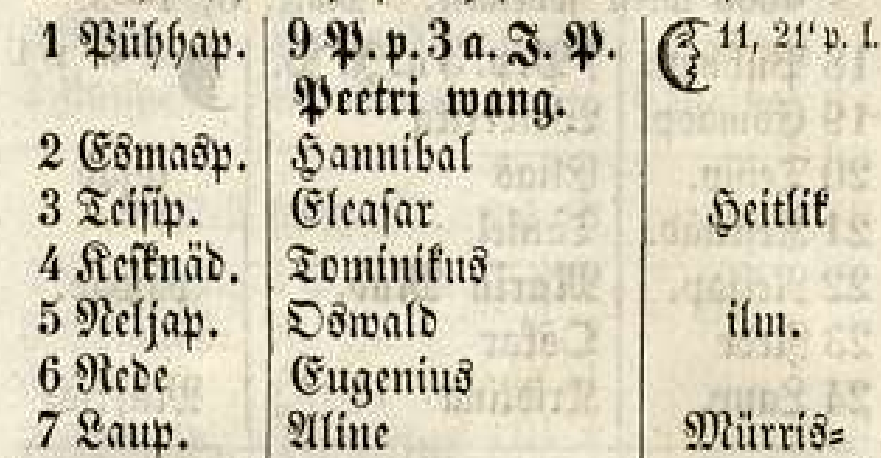 1 Pühhap. 9 P. p. 3 a. J. P. 11, 21' p. l.
Peetri wang.
2 Esmasp. Hannibal
3 Teisip. Eleasar Heitlik
4 Kesknäd. Tominikus
5 Neljap. Oswald ilm.
6 Rede Eugenius
7 Laup. Aline Mürris=